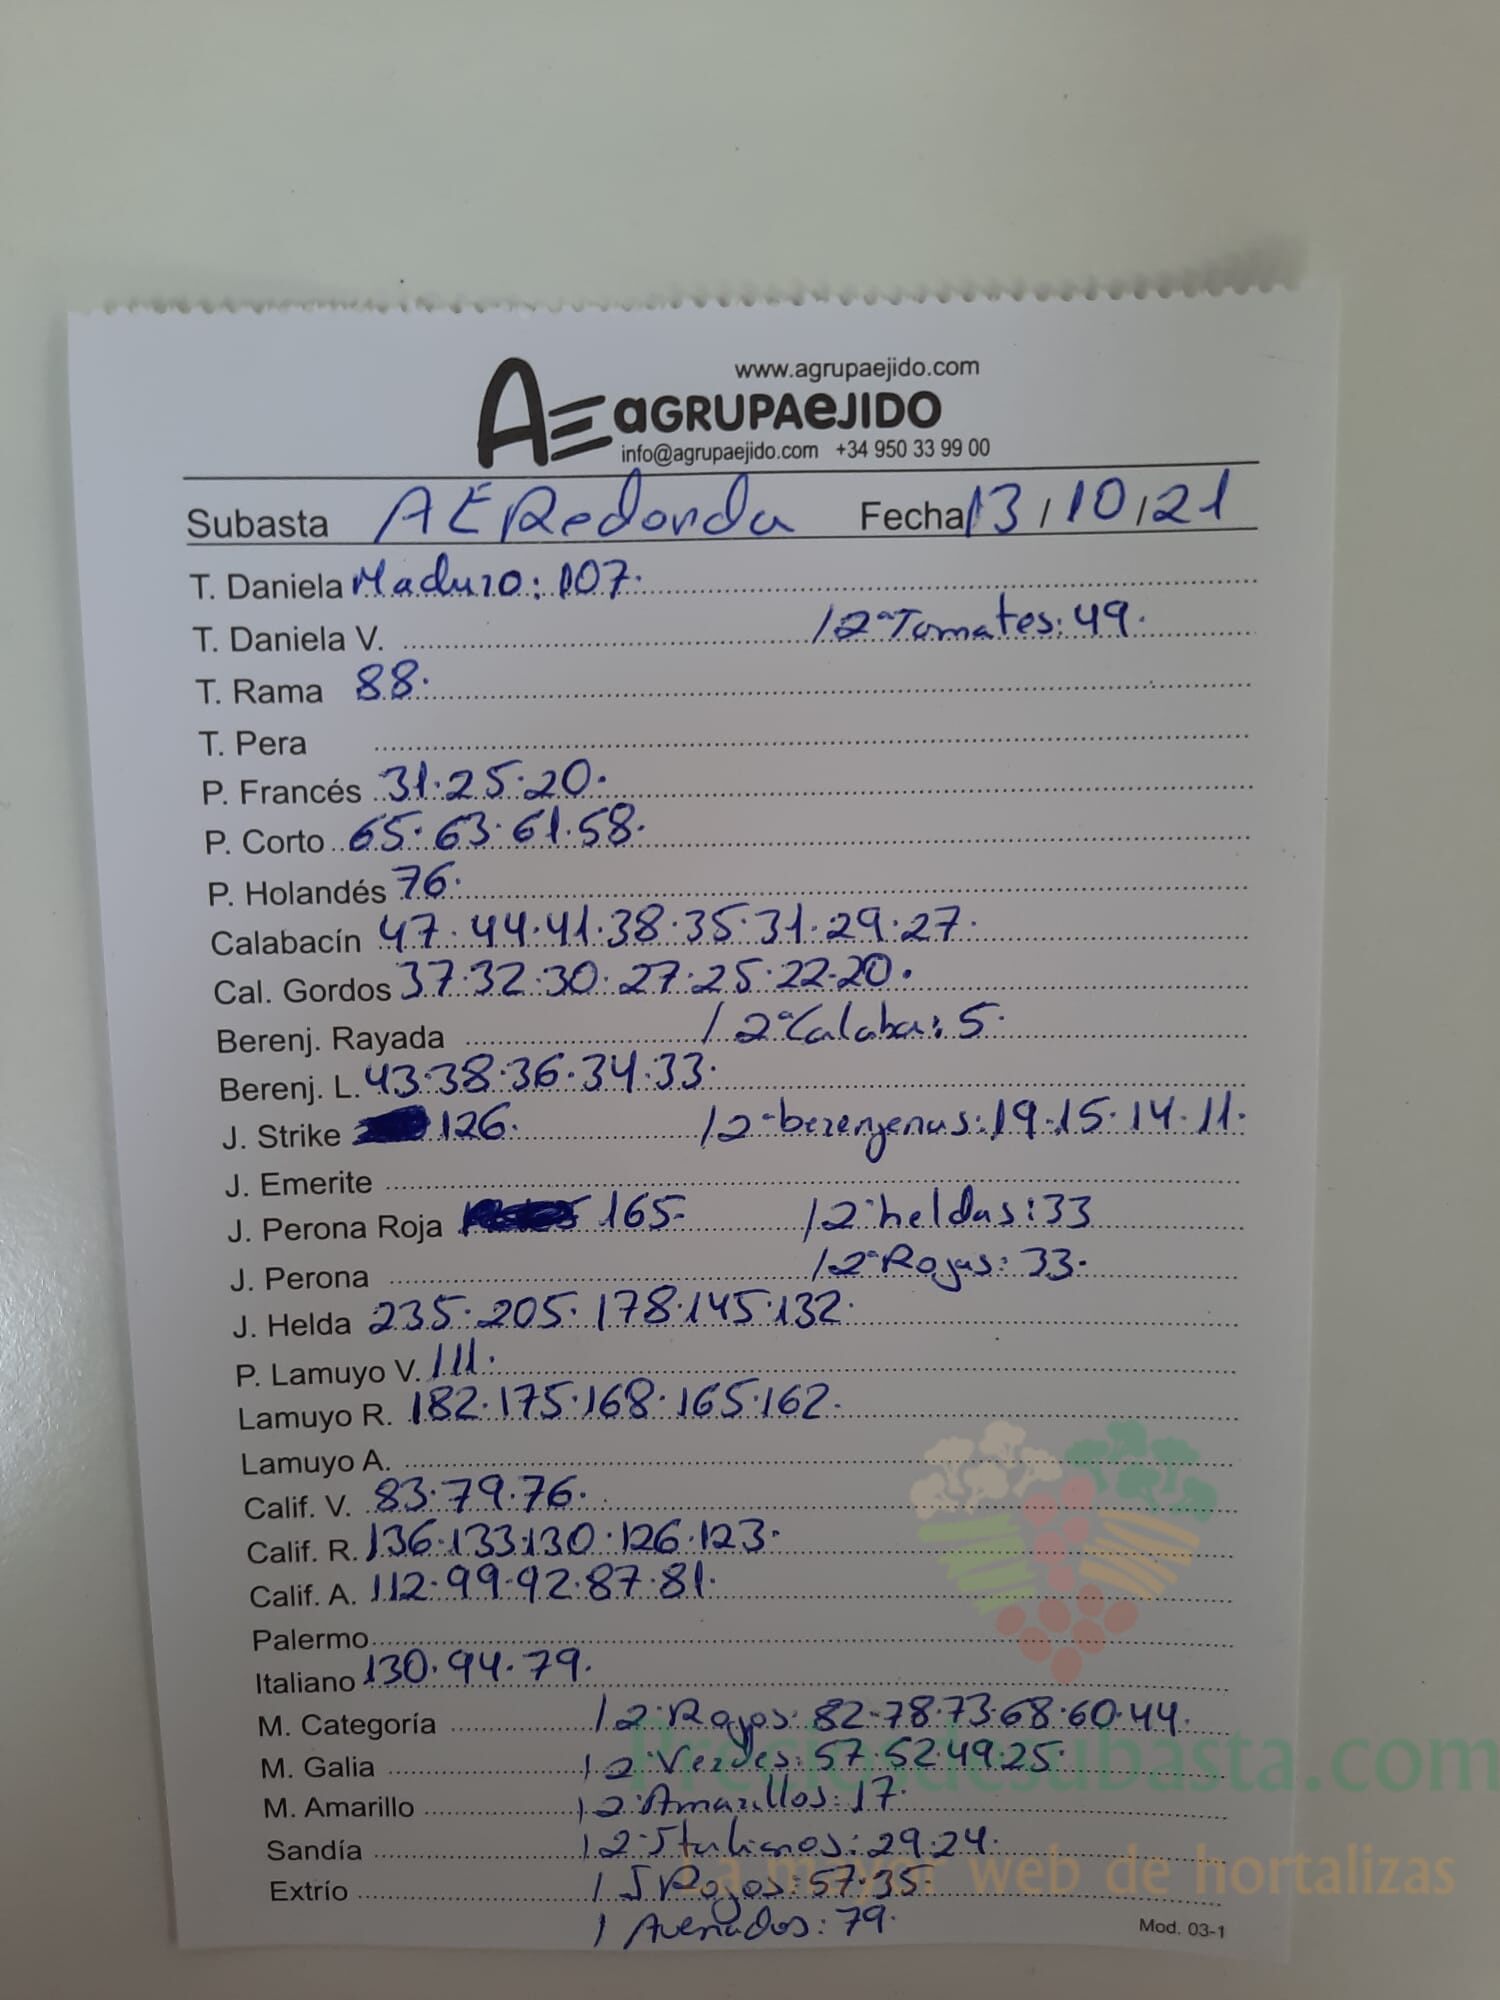 www.agrupaejido.com
AE aGRUPAeJIDO
info@agrupaejido.com +34 950 33 99 00
Subasta AE Redonda Fecha 13/10/21
T. Daniela Maduro: 107.
T. Daniela V. / 2ª Tomates: 49.
T. Rama 88.
T. Pera
P. Francés 31.25.20.
P. Corto 65.63.61.58.
P. Holandés 76.
Calabacín 47.44.41.38.35.31.29.27.
Cal. Gordos 37.32.30.27.25.22.20.
Berenj. Rayada / 2ª Calaba: 5.
Berenj. L. 43.38.36.34.33.
J. Strike 126. / 2ª berenjenas: 19.15.14.11.
J. Emerite
J. Perona Roja 165. / 2ª heldas: 33
J. Perona / 2ª Rojas: 33.
J. Helda 235.205.178.145.132.
P. Lamuyo V. 111.
Lamuyo R. 182.175.168.165.162.
Lamuyo A.
Calif. V. 83.79.76.
Calif. R. 136.133.130.126.123.
Calif. A. 112.99.92.87.81.
Palermo
Italiano 130.94.79.
M. Categoría / 2ª Rojos: 82.78.73.68.60.44.
M. Galia / 2ª Verdes: 57.52.49.25.
Preciosdesubasta.com
M. Amarillo / 2ª Amarillos: 17.
Sandía / 2ª Italianos: 29.24.
La mayor web de hortalizas
Extrío / S Rojos: 57.35.
/ Asenados: 79.
Mod. 03-1